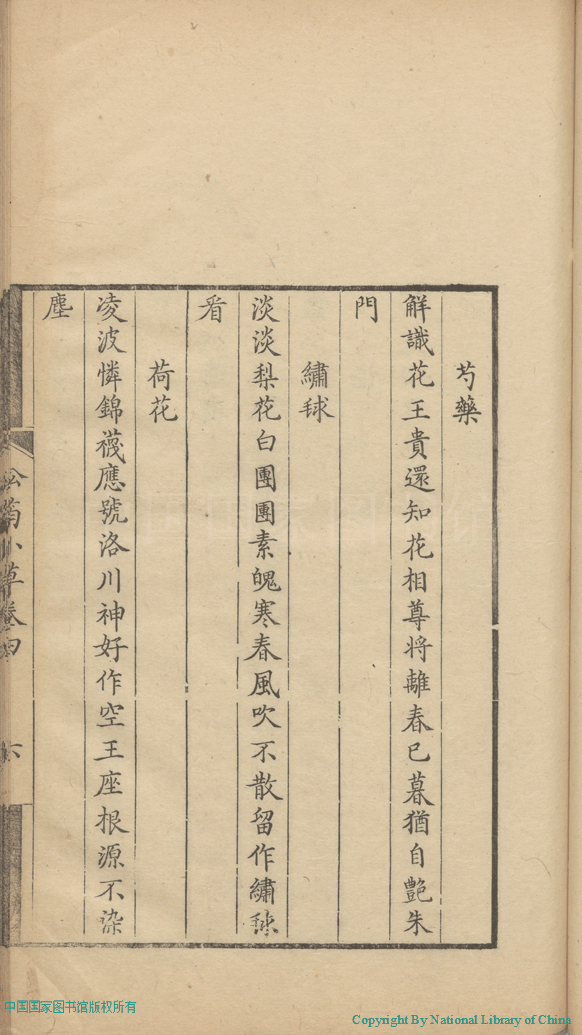 芍藥
觧識花王貴還知花相尊將離春已暮猶自艷朱
門
繡球
淡淡梨花白團團素魄寒春風吹不散留作繡球
看
荷花
凌波憐錦襪應號洛川神好作空王座根源不染
塵
小草卷四
六
中国国家图书馆版权所有
Copyright By National Library of China